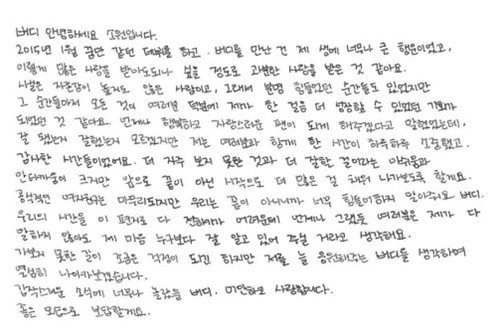 버디 안녕하세요 소원입니다.
2015년 1월 꿈만 같던 데뷔를 하고. 버디를 만난 건 제 생에 너무나 큰 행운이었고,
이렇게 많은 사랑을 받아도되나 싶을 정도로 과분한 사랑을 받은 것 같아요.
사실은 자존감이 높지도 않은 사람이고, 그래서 분명 힘들었던 순간들도 있었지만
그 순간들마저 모든 것이 여러분 덕분에 제가 한 걸음 더 성장할 수 있었던 기회가
되었던 것 같아요. 언제나 행복하고 자랑스러운 편이 되게 해주겠다고 말했었는데,
잘 됐는지 잘했는지 모르겠지만 저는 여러분과 함께 한 시간이 하루하루 소중했고,
감사한 시간들이었어요. 더 자주 보지 못한 것과 더 잘할 걸이라는 아쉬움과
안타까움이 크지만 앞으로 끝이 아닌 시작으로 더 많은 걸 채워 나가보도록 할게요.
공식적인 여자친구는 마무리되지만 우리는 끝이 아니니까 너무 힘들어하지 말아주세요 버디.
우리의 시간을 이 편지로 다 전하기가 어려운데 언제나 그랬듯 여러분은 제가 다
말하지 않아도 제 마음 누구보다 잘 알고 있어 주실 거라고 생각해요.
가보지 못한 길이 조금은 걱정이 되긴 하지만 저를 늘 응원해주는 버디를 생각하며
열심히 나아가보겠습니다.
갑작스러운 소식에 너무나 놀랐을 버디. 미안하고 사랑합니다.
좋은 모습으로 보답할게요.